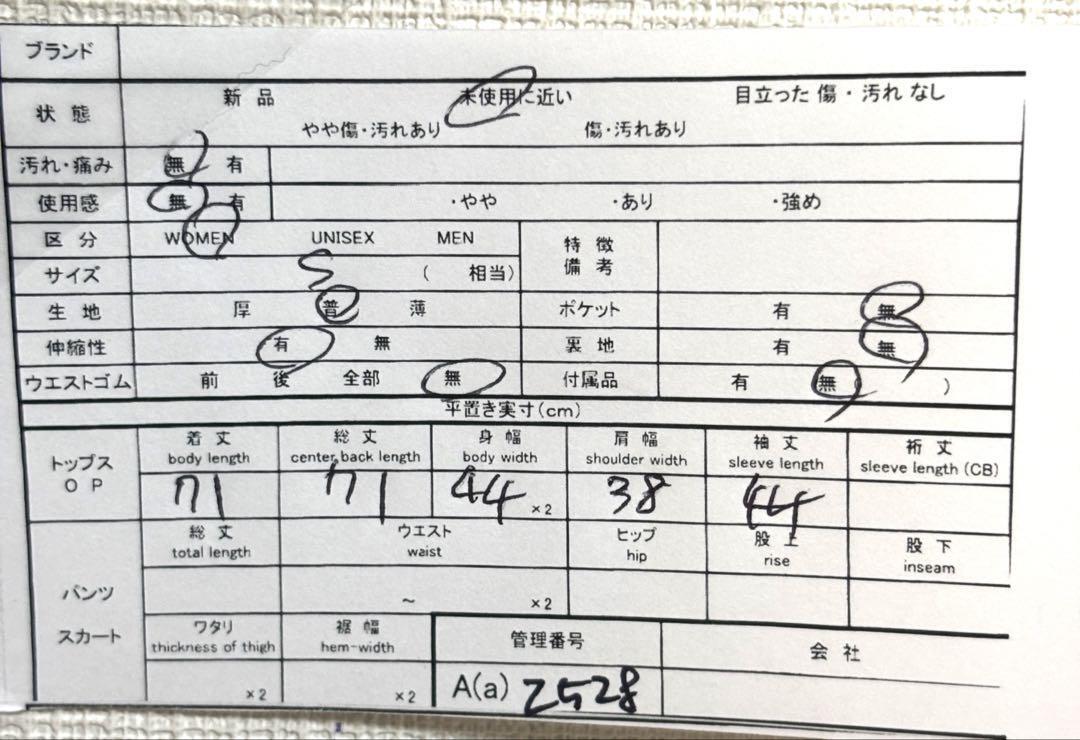 ブランド
状態 新品 未使用に近い 目立った傷・汚れなし
やや傷・汚れあり 傷・汚れあり
汚れ・痛み 無 有
使用感 無 有 ・やや ・あり ・強め
区分 WOMEN UNISEX MEN 特徴
備考
サイズ S ( 相当)
生地 厚 普 薄 ポケット 有 無
伸縮性 有 無 裏地 有 無
ウエストゴム 前 後 全部 無 付属品 有 無( )
平置き実寸(cm)
トップス
OP
着丈 総丈 身幅 肩幅 袖丈 裄丈
body length center back length body width shoulder width sleeve length sleeve length (CB)
71 71 44 ×2 38 44
パンツ
スカート
総丈 ウエスト ヒップ 股上 股下
total length waist hip rise inseam
~ ×2
ワタリ 裾幅 管理番号 会社
thickness of thigh hem-width
×2 ×2 A(a) 2528